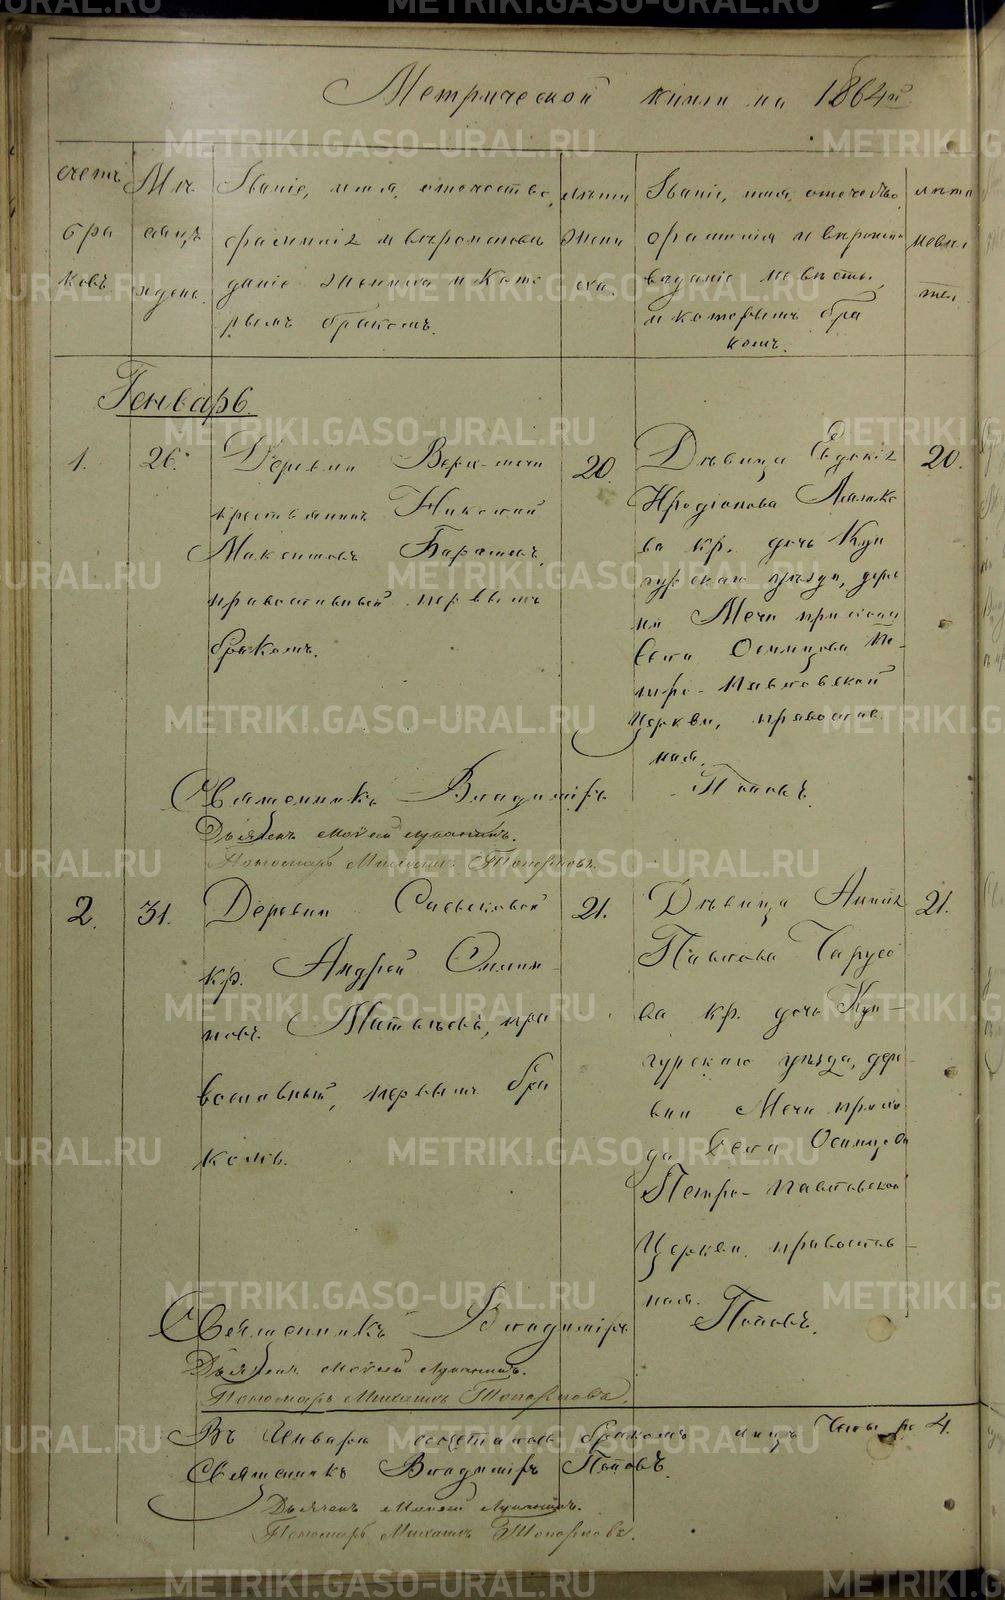 Метрической книги на 1864й
счетъ бра ковъ
Мѣ сяцъ и день.
Званіе, имя, отечество, фамилія и вѣроисповѣ даніе жениха и кото рымъ бракомъ.
лѣта жени ха.
Званіе, имя, отечество, фамилія и вѣроиспо вѣданіе невѣсты, и которымъ бра комъ.
лѣта невѣс ты.
Генварь
1.
26.
Деревни Верх-мечи
крестьянинъ Николай
Максимовъ
православный первымъ
бракомъ.
20.
Дѣвица Евдокія
Иродіонова
ва кр. дочь Кун
гурскаго уѣзда, дерев
ни Мечи прихода
Села Осинцова Пе-
тро-Павловской
Церкви, православ
ная.
20.
Священникъ Владиміръ Поповъ.
Дьяченъ Моисей Лукинъ.
Пономарь Михаилъ Топорковъ.
2.
31.
Деревни
кр. Андрей Филип
повъ Матвѣевъ, пра
вославный, первымъ бра
комъ.
21.
Дѣвица Анна
Павлова Чарусо
ва кр. дочь Кун-
гурскаго уѣзда, дер
вни Мечи прихо
да Села Осинцова
Петро-Павловской
Церкви, православ-
ная.
21.
Священникъ Владиміръ Поповъ.
Дьяченъ Моисей Лукинъ.
Пономарь Михаилъ Топорковъ.
Въ Январѣ сочетано бракомъ лицъ Четыре 4.
Священникъ Владиміръ Поповъ.
Дьяченъ Моисей Лукинъ.
Пономарь Михаилъ Топорковъ.
METRIKI.GASO-URAL.RU